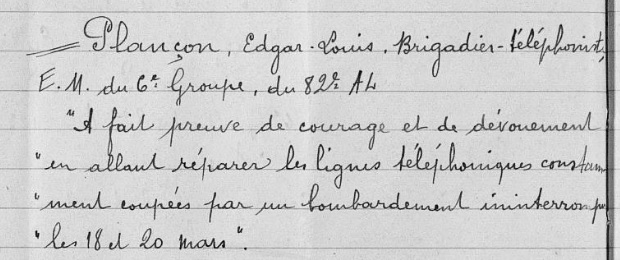 Plançon, Edgar-Louis, Brigadier-téléphoniste,
E.M. du 6e Groupe, du 82e AL
"A fait preuve de courage et de dévouement
"en allant réparer les lignes téléphoniques constam
"ment coupées par un bombardement ininterrompu
"les 18 et 20 mars".